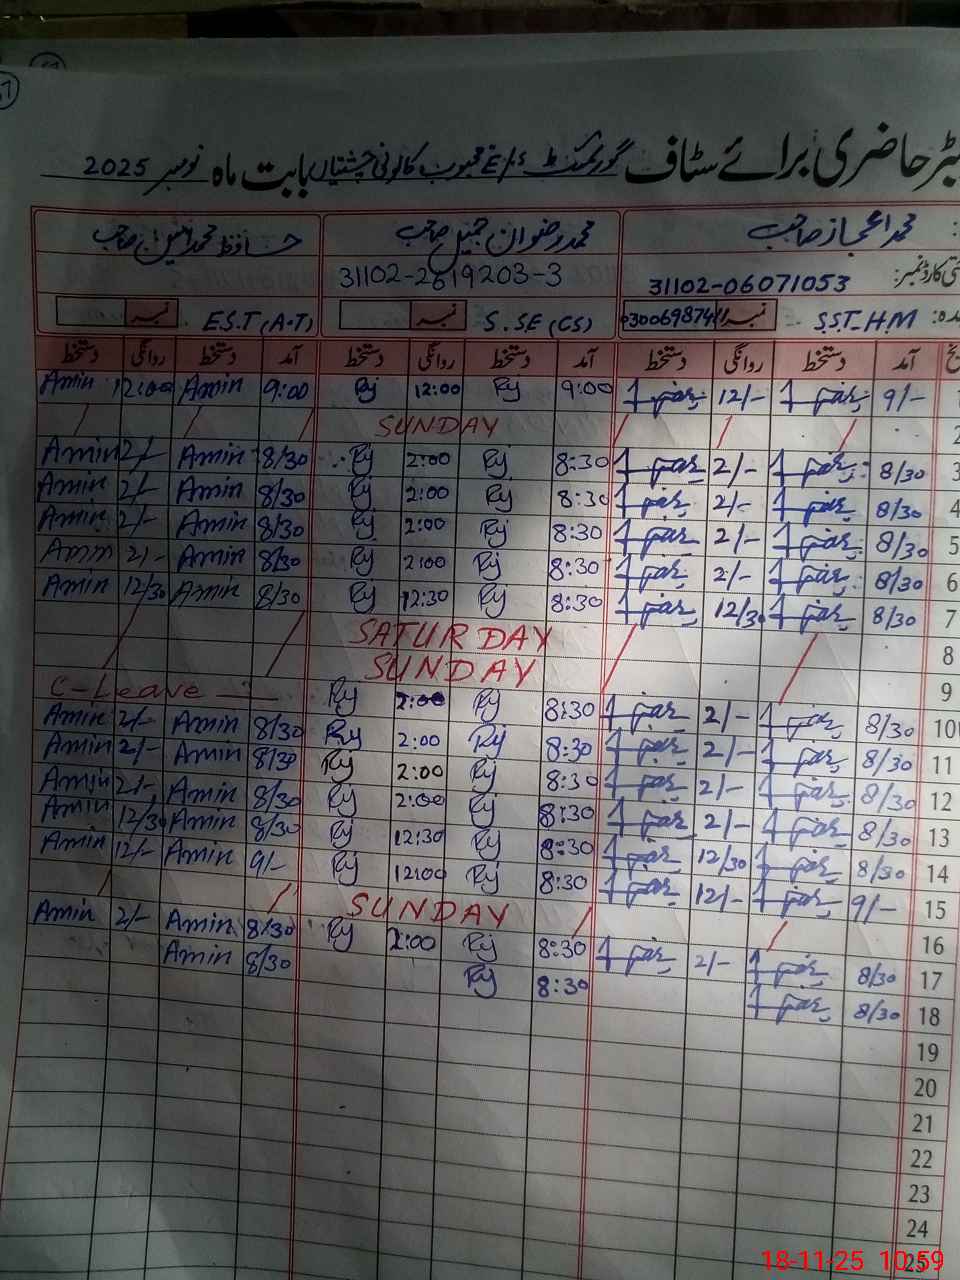 رجسٹر حاضری برائے سٹاف گورنمنٹ E/S محبوب کالونی چشتیاں بابت ماہ نومبر 2025
محمد اعجاز صاحب محمد رضوان جمیل صاحب حافظ محمد صاحب
31102-06071053 31102-2619203-3
S.S.T.H.M نمبر S.SE (CS) نمبر E.S.T (A.T) نمبر
آمد دستخط روانگی دستخط آمد دستخط روانگی دستخط آمد دستخط روانگی دستخط
1 9/- 12/- 9:00 Rj 12:00 Rj 9:00 Amin 12:00 Amin
2 SUNDAY
3 8/30 2/- 8:30 Rj 2:00 Rj 8/30 Amin 2/- Amin
4 8/30 2/- 8:30 Rj 2:00 Rj 8/30 Amin 2/- Amin
5 8/30 2/- 8:30 Rj 2:00 Rj 8/30 Amin 2/- Amin
6 8/30 2/- 8:30 Rj 2:00 Rj 8/30 Amin 2/- Amin
7 8/30 12/30 8:30 Rj 12:30 Rj 8/30 Amin 12/30 Amin
8 SATURDAY
9 SUNDAY
10 8/30 2/- 8:30 Rj 2:00 Rj C-Leave
11 8/30 2/- 8:30 Rj 2:00 Rj 8/30 Amin 2/- Amin
12 8/30 2/- 8:30 Rj 2:00 Rj 8/30 Amin 2/- Amin
13 8/30 2/- 8:30 Rj 2:00 Rj 8/30 Amin 2/- Amin
14 8/30 12/30 8:30 Rj 12:30 Rj 8/30 Amin 12/30 Amin
15 9/- 12/- 8:30 Rj 12:00 Rj 9/- Amin 12/- Amin
16 SUNDAY
17 8/30 2/- 8:30 Rj 2:00 Rj 8/30 Amin 2/- Amin
18 8/30 8:30 Rj 8/30 Amin
19
20
21
22
23
24
25
18-11-25 10:59